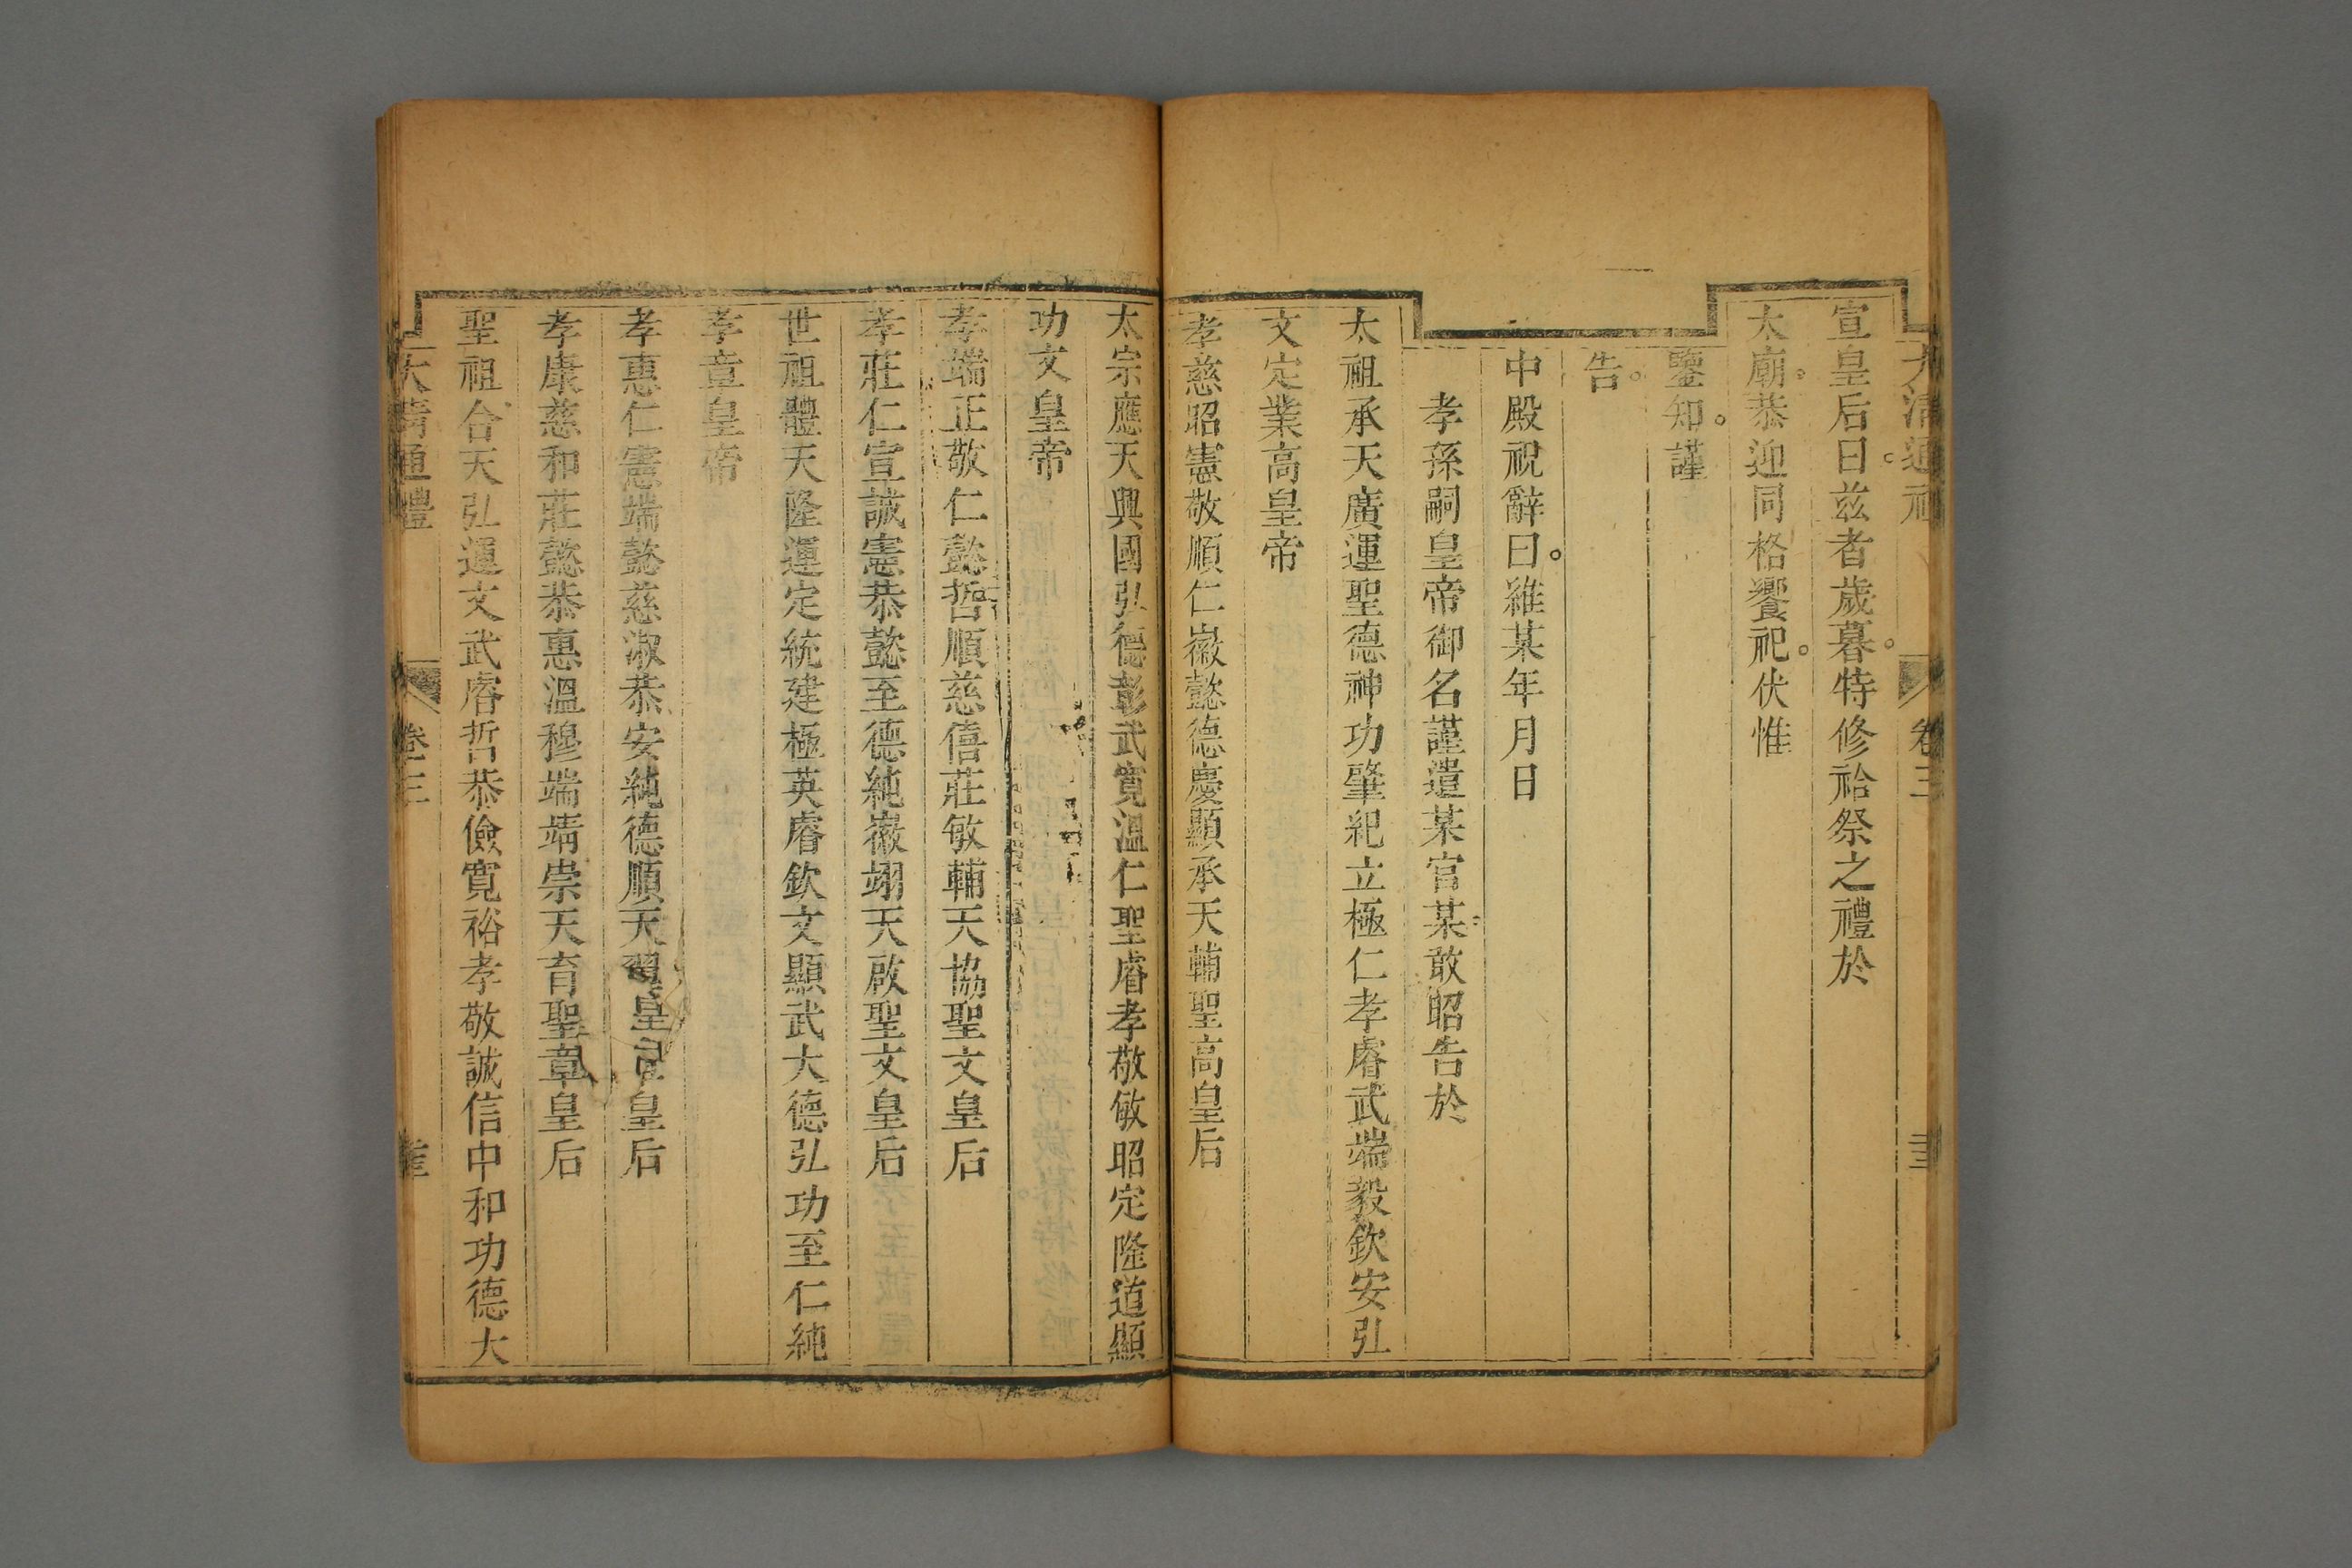 大清通禮 卷三
宣皇后曰。兹者歲暮。特修祫祭之禮於
太廟。恭迎同格饗祀。伏惟
鑒知。謹
告。
中殿祝辭曰。維某年月日
孝孫嗣皇帝御名謹遣某官某敢昭告於
太祖承天廣運聖德神功肇紀立極仁孝睿武端毅欽安弘
文定業高皇帝
孝慈昭憲敬順仁徽懿德慶顯承天輔聖高皇后
太宗應天興國弘德彰武寬溫仁聖睿孝敬敏昭定隆道顯
功文皇帝
孝端正敬仁懿哲順慈僖莊敏輔天協聖文皇后
孝莊仁宣誠憲恭懿至德純徽翊天啟聖文皇后
世祖體天隆運定統建極英睿欽文顯武大德弘功至仁純
孝章皇帝
孝惠仁憲端懿慈淑恭安純德順天皇后
孝康慈和莊懿恭惠溫穆端靖崇天育聖章皇后
聖祖合天弘運文武睿哲恭儉寬裕孝敬誠信中和功德大
大清通禮 卷三